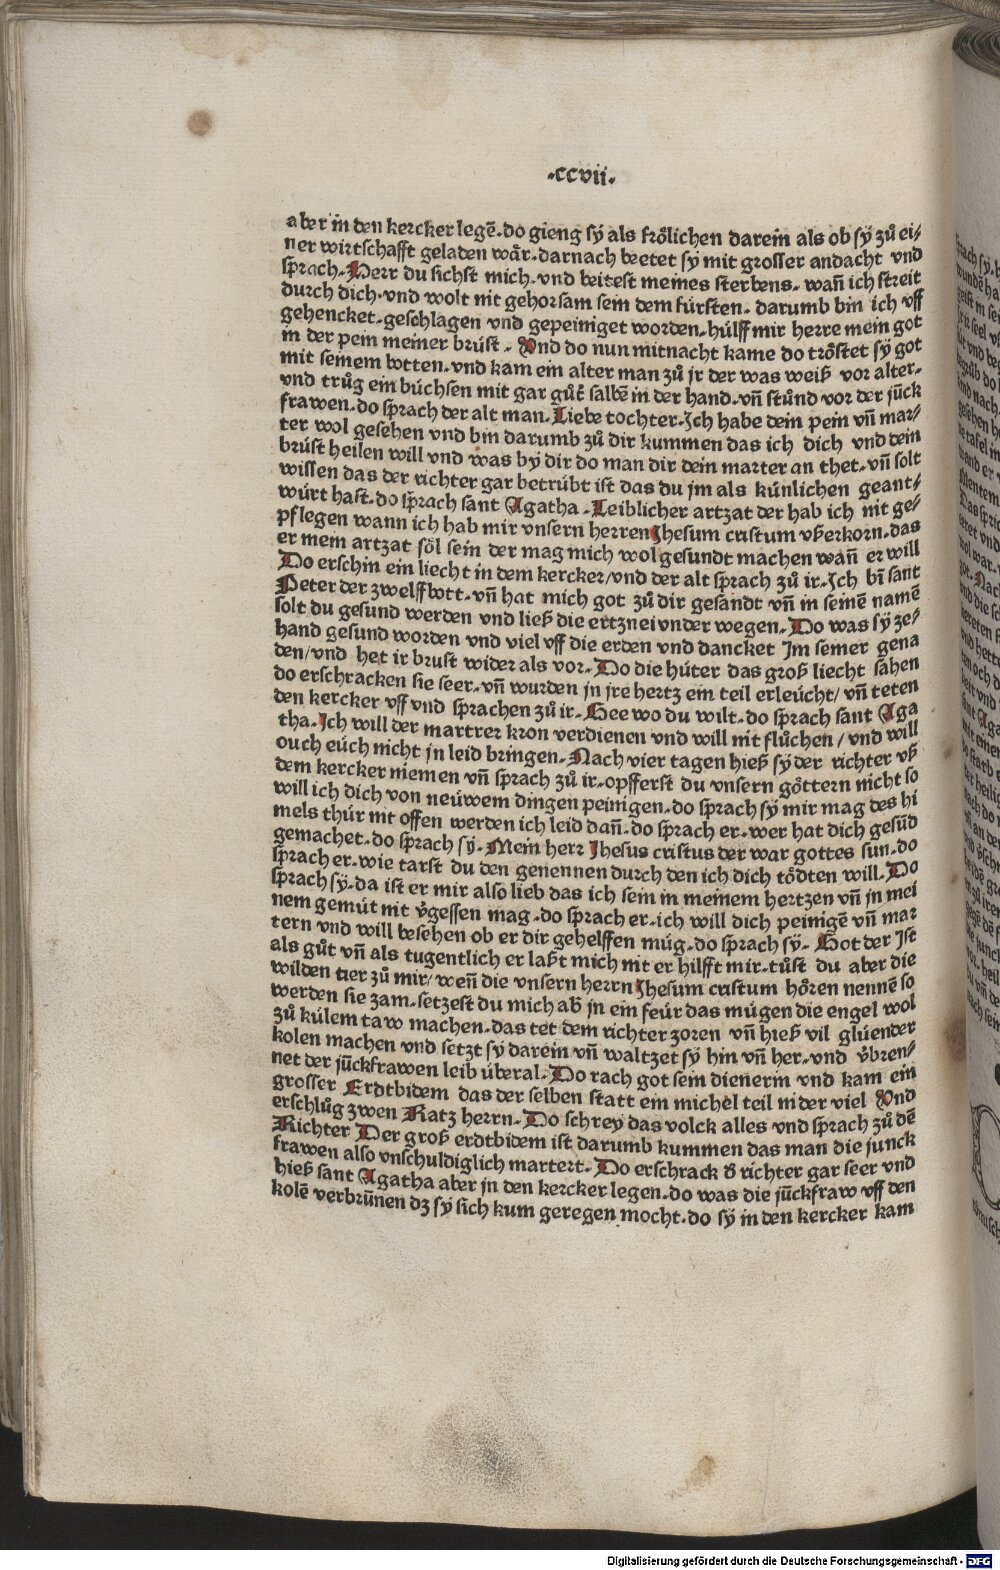 ·ccvii·
aber in den kercker legē·do gieng sÿ als frölichen darein als ob sÿ zů ei/
ner wirtschafft geladen wår·darnach beetet sÿ mit grosser andacht vnd
sprach·Herr du sichst mich·vnd beitest meines sterbens·wañ ich streit
durch dich·vnd wolt nit gehorsam sein dem fürsten·darumb bin ich vff
gehencket·geschlagen vnd gepeiniget worden·hülff mir herre mein got
in der pein meiner brúst·Vnd do nun mitnacht kame do tröstet sÿ got
mit seinem botten·vnd kam ein alter man zů jr der was weiß vor alter·
vnd trůg ein búchsen mit gar gůt̄ salbē in der hand·vñ stůnd vor der jūck
frawen·do sprach der alt man·Liebe tochter·Ich habe dein pein vñ mar/
ter wol gesehen vnd bin darumb zů dir kummen das ich dich vnd dein
brúst heilen will vnd was bÿ dir do man dir dein marter an thet·vñ solt
wissen das der richter gar betrúbt ist das du jm als künlichen geant/
würt hast·do sprach sant Agatha·Leiblicher artzat der hab ich nit ge/
pflegen wann ich hab mir vnsern herren Jhesum cristum vßerkorn·das
er mein artzat söl sein der mag mich wol gesundt machen wañ er will
Do erschin ein liecht in dem kercker/vnd der alt sprach zů ir·Ich bī sant
Peter der zwelffbott·vñ hat mich got zů dir gesandt vñ in seinē namē
solt du gesund werden vnd ließ die ertznei vnder wegen·Do was sÿ ze/
hand gesund worden vnd viel vff die erden vnd dancket Im seiner gena
den/vnd het ir brust wider als vor·Do die húter das groß liecht sahen
do erschracken sie seer·vñ wurden jn jre hertz ein teil erleúcht/vñ teten
den kercker vff vnd sprachen zů ir·Gee wo du wilt·do sprach sant Aga
tha·Ich will der martrer kron verdienen vnd will nit flůchen/vnd will
ouch eúch nicht jn leid bringen·Nach vier tagen hieß sÿ der richter vß
dem kercker niemen vñ sprach zů ir·opfferst du vnsern göttern nicht so
will ich dich von neúwem dingen peinigen·do sprach sÿ mir mag des hi
mels thúr nit offen werden ich leid dañ·do sprach er·wer hat dich gesūd
gemachet·do sprach sÿ·Mein herr Jhesus cristus der war gottes sun·do
sprach er·wie tarst du den genennen durch den ich dich tödten will·Do
sprach sÿ·da ist er mir also lieb das ich sein in meinem hertzen vñ jn mei
nem gemút nit v̄gessen mag·do sprach er·ich will dich peinigē vñ mar
tern vnd will besehen ob er dir gehelffen múg·do sprach sÿ·Got der Ist
als gůt vñ als tugentlich er laßt mich nit er hilfft mir·tůst du aber die
wilden tier zů mir/weñ die vnsern herrn Jhesum cristum hören nennē so
werden sie zam·setzest du mich ab̄ jn ein feúr das múgen die engel wol
zů kúlem taw machen·das tet dem richter zoren vñ hieß vil glúender
kolen machen vnd setzt sÿ darein vñ waltzet sÿ hin vñ her·vnd v̄bren/
net der jūckfrawen leib úberal·Do rach got sein dienerin vnd kam ein
grosser Erdtbidem das der selben statt ein michel teil nider viel Vnd
erschlůg zwen Ratz herrn·Do schrey das volck alles vnd sprach zů dē
Richter Der groß erdtbidem ist darumb kummen das man die junck
frawen also vnschuldiglich martert·Do erschrack d̄ richter gar seer vnd
hieß sant Agatha aber jn den kercker legen·do was die jūckfraw vff den
kolē verbrūnen dz sÿ sich kum geregen mocht·do sÿ in den kercker kam
Digitalisierung gefördert durch die Deutsche Forschungsgemeinschaft - DFG